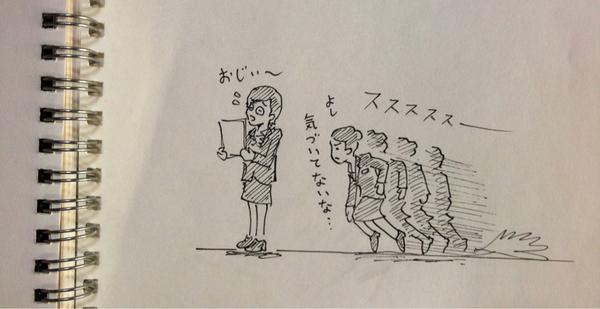 おじぃ〜
よし
気づいてないな…
ススススス―